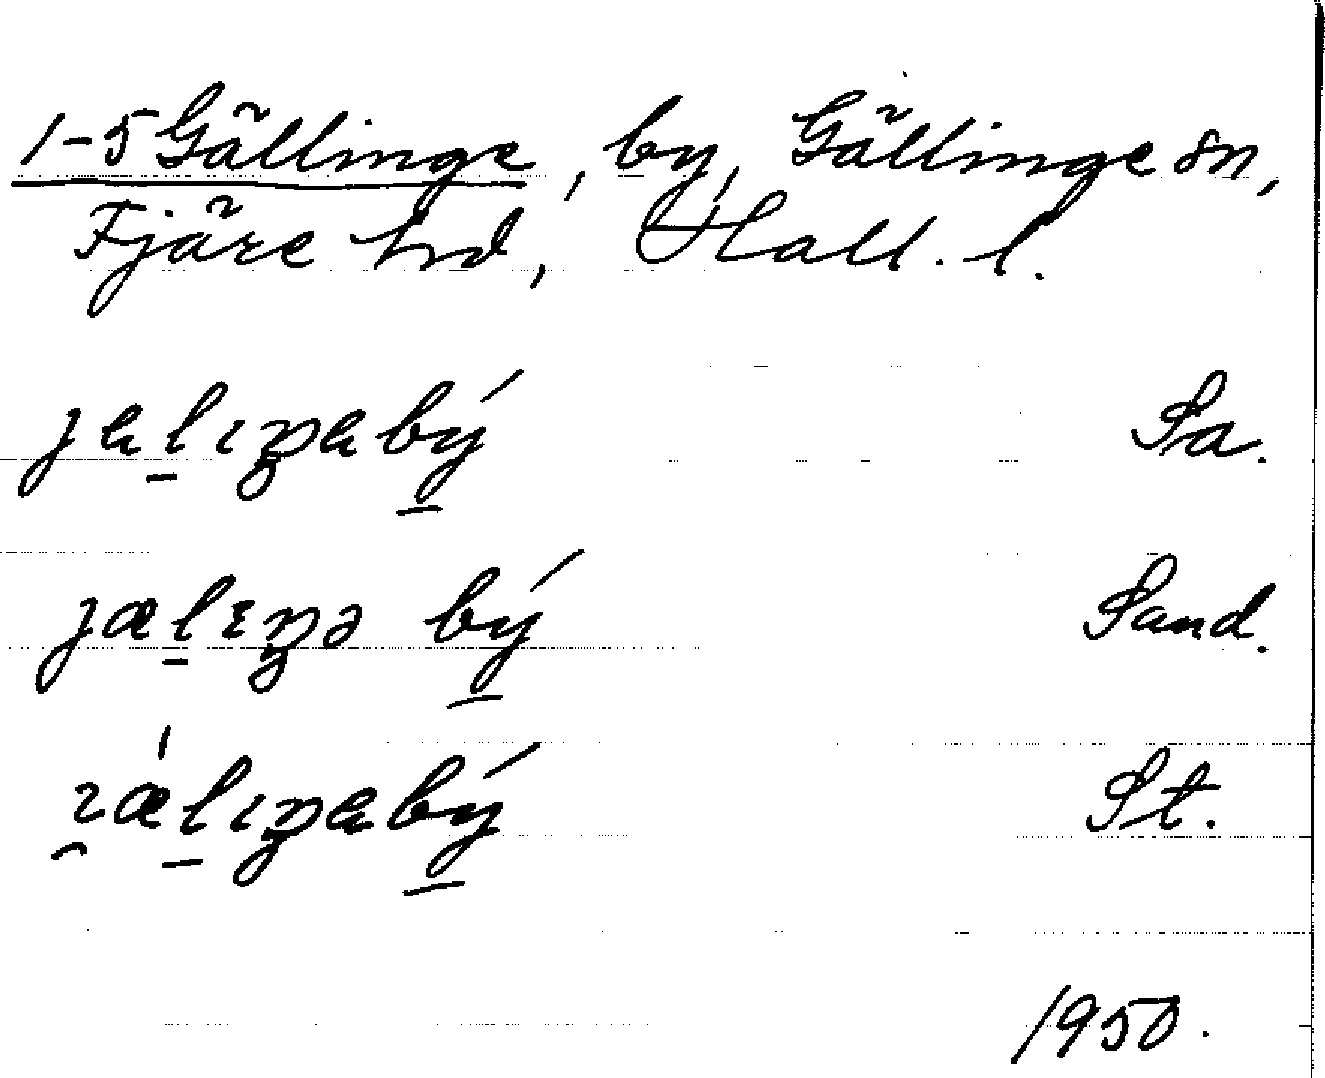 1-5 Gällinge, by, Gällinge sn,
Fjäre hd, Hall. l.
jalıŋabý Sa.
jælɪŋə bý Sand.
ıǽlıŋabý St.
1950.